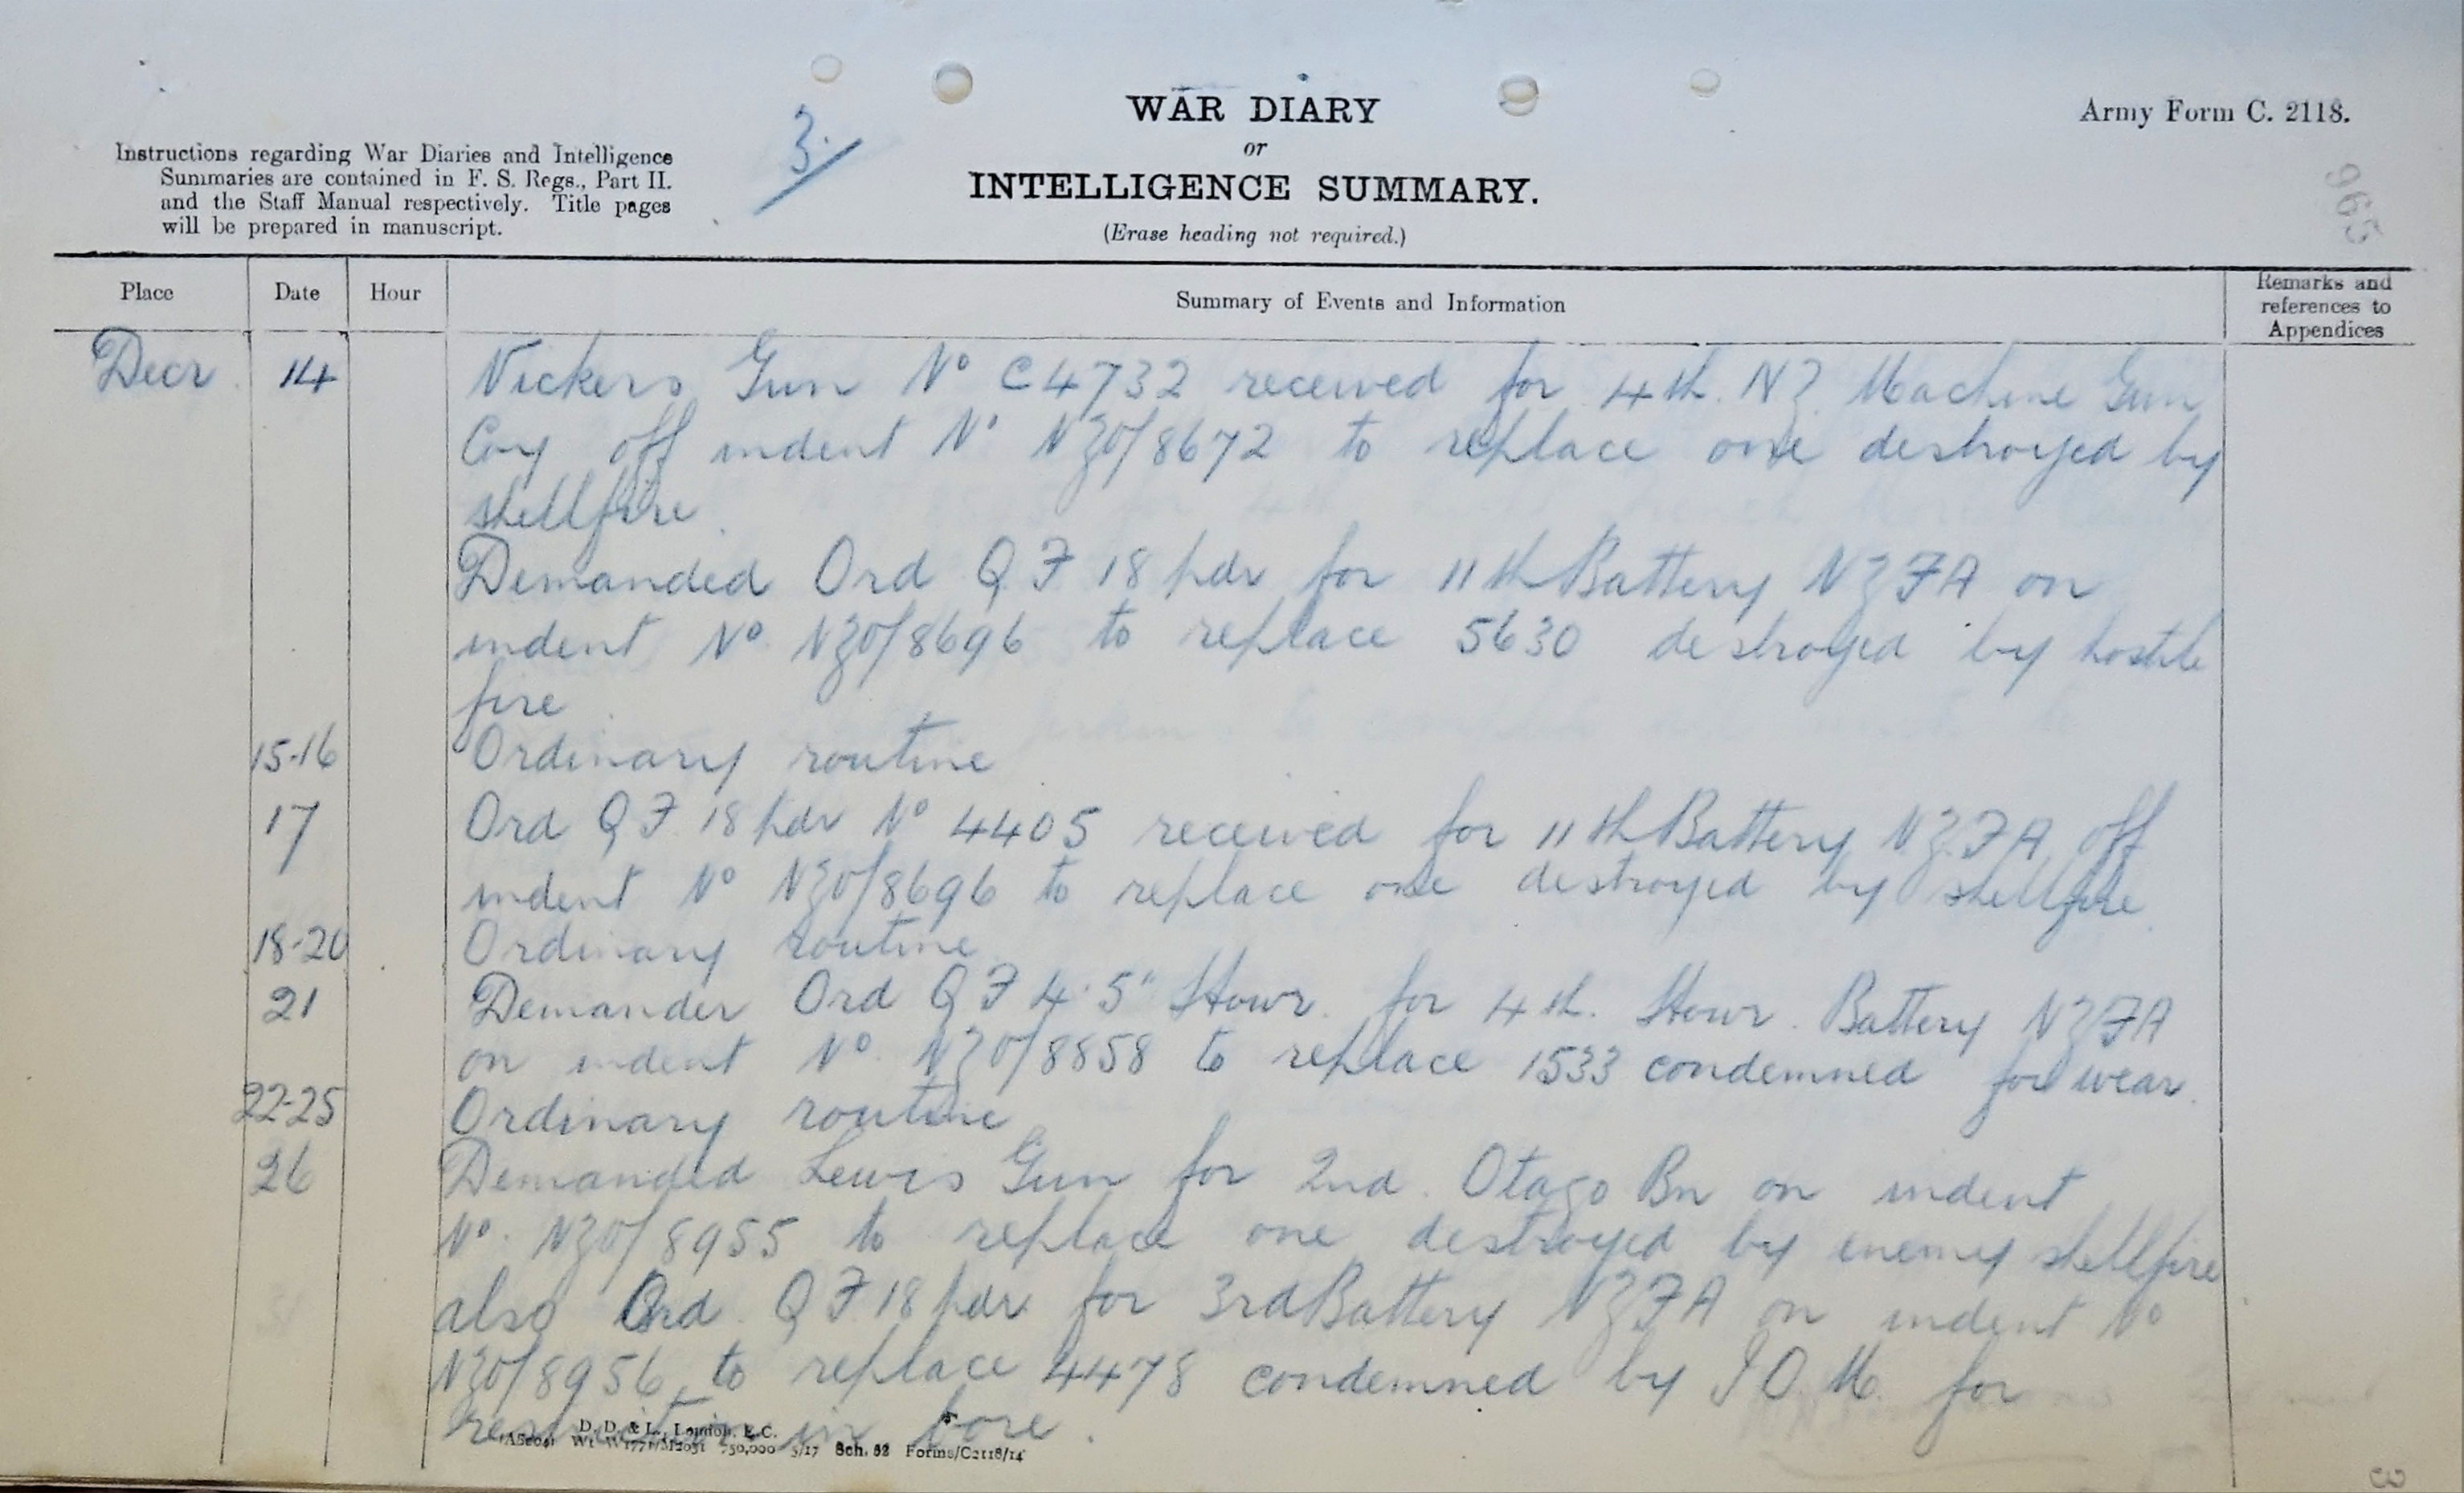 3.
WAR DIARY
or
INTELLIGENCE SUMMARY.
(Erase heading not required.)
Army Form C. 2118.
Instructions regarding War Diaries and Intelligence
Summaries are contained in F. S. Regs., Part II.
and the Staff Manual respectively. Title pages
will be prepared in manuscript.
965
Place Date Hour Summary of Events and Information Remarks and references to Appendices
Decr 14 Vickers Gun No C4732 received for 4th. NZ. Machine Gun
Coy off indent No NZO/8672 to replace one destroyed by
shellfire.
Demanded Ord QF 18 pdr for 11th Battery NZFA on
indent No. NZO/8696 to replace 5630 destroyed by hostile
fire
15-16 Ordinary routine
17 Ord QF 18 pdr No 4405 received for 11th Battery NZFA off
indent No NZO/8696 to replace one destroyed by shellfire.
18-20 Ordinary routine
21 Demander Ord QF 4.5" Howr. for 4th. Howr. Battery NZFA
on indent No. NZO/8858 to replace 1533 condemned for wear.
22-25 Ordinary routine
26 Demanded Lewis Gun for 2nd. Otago Bn on indent
No. NZO/8955 to replace one destroyed by enemy shellfire
also Ord QF 18 pdr for 3rd Battery NZFA on indent No
NZO/8956 to replace 4478 condemned by IOM for
in bore.
D. D. & L., London, E.C.
Wt W1771/M2031 750,000 5/17 Sch. 52 Forms/C2118/14
3